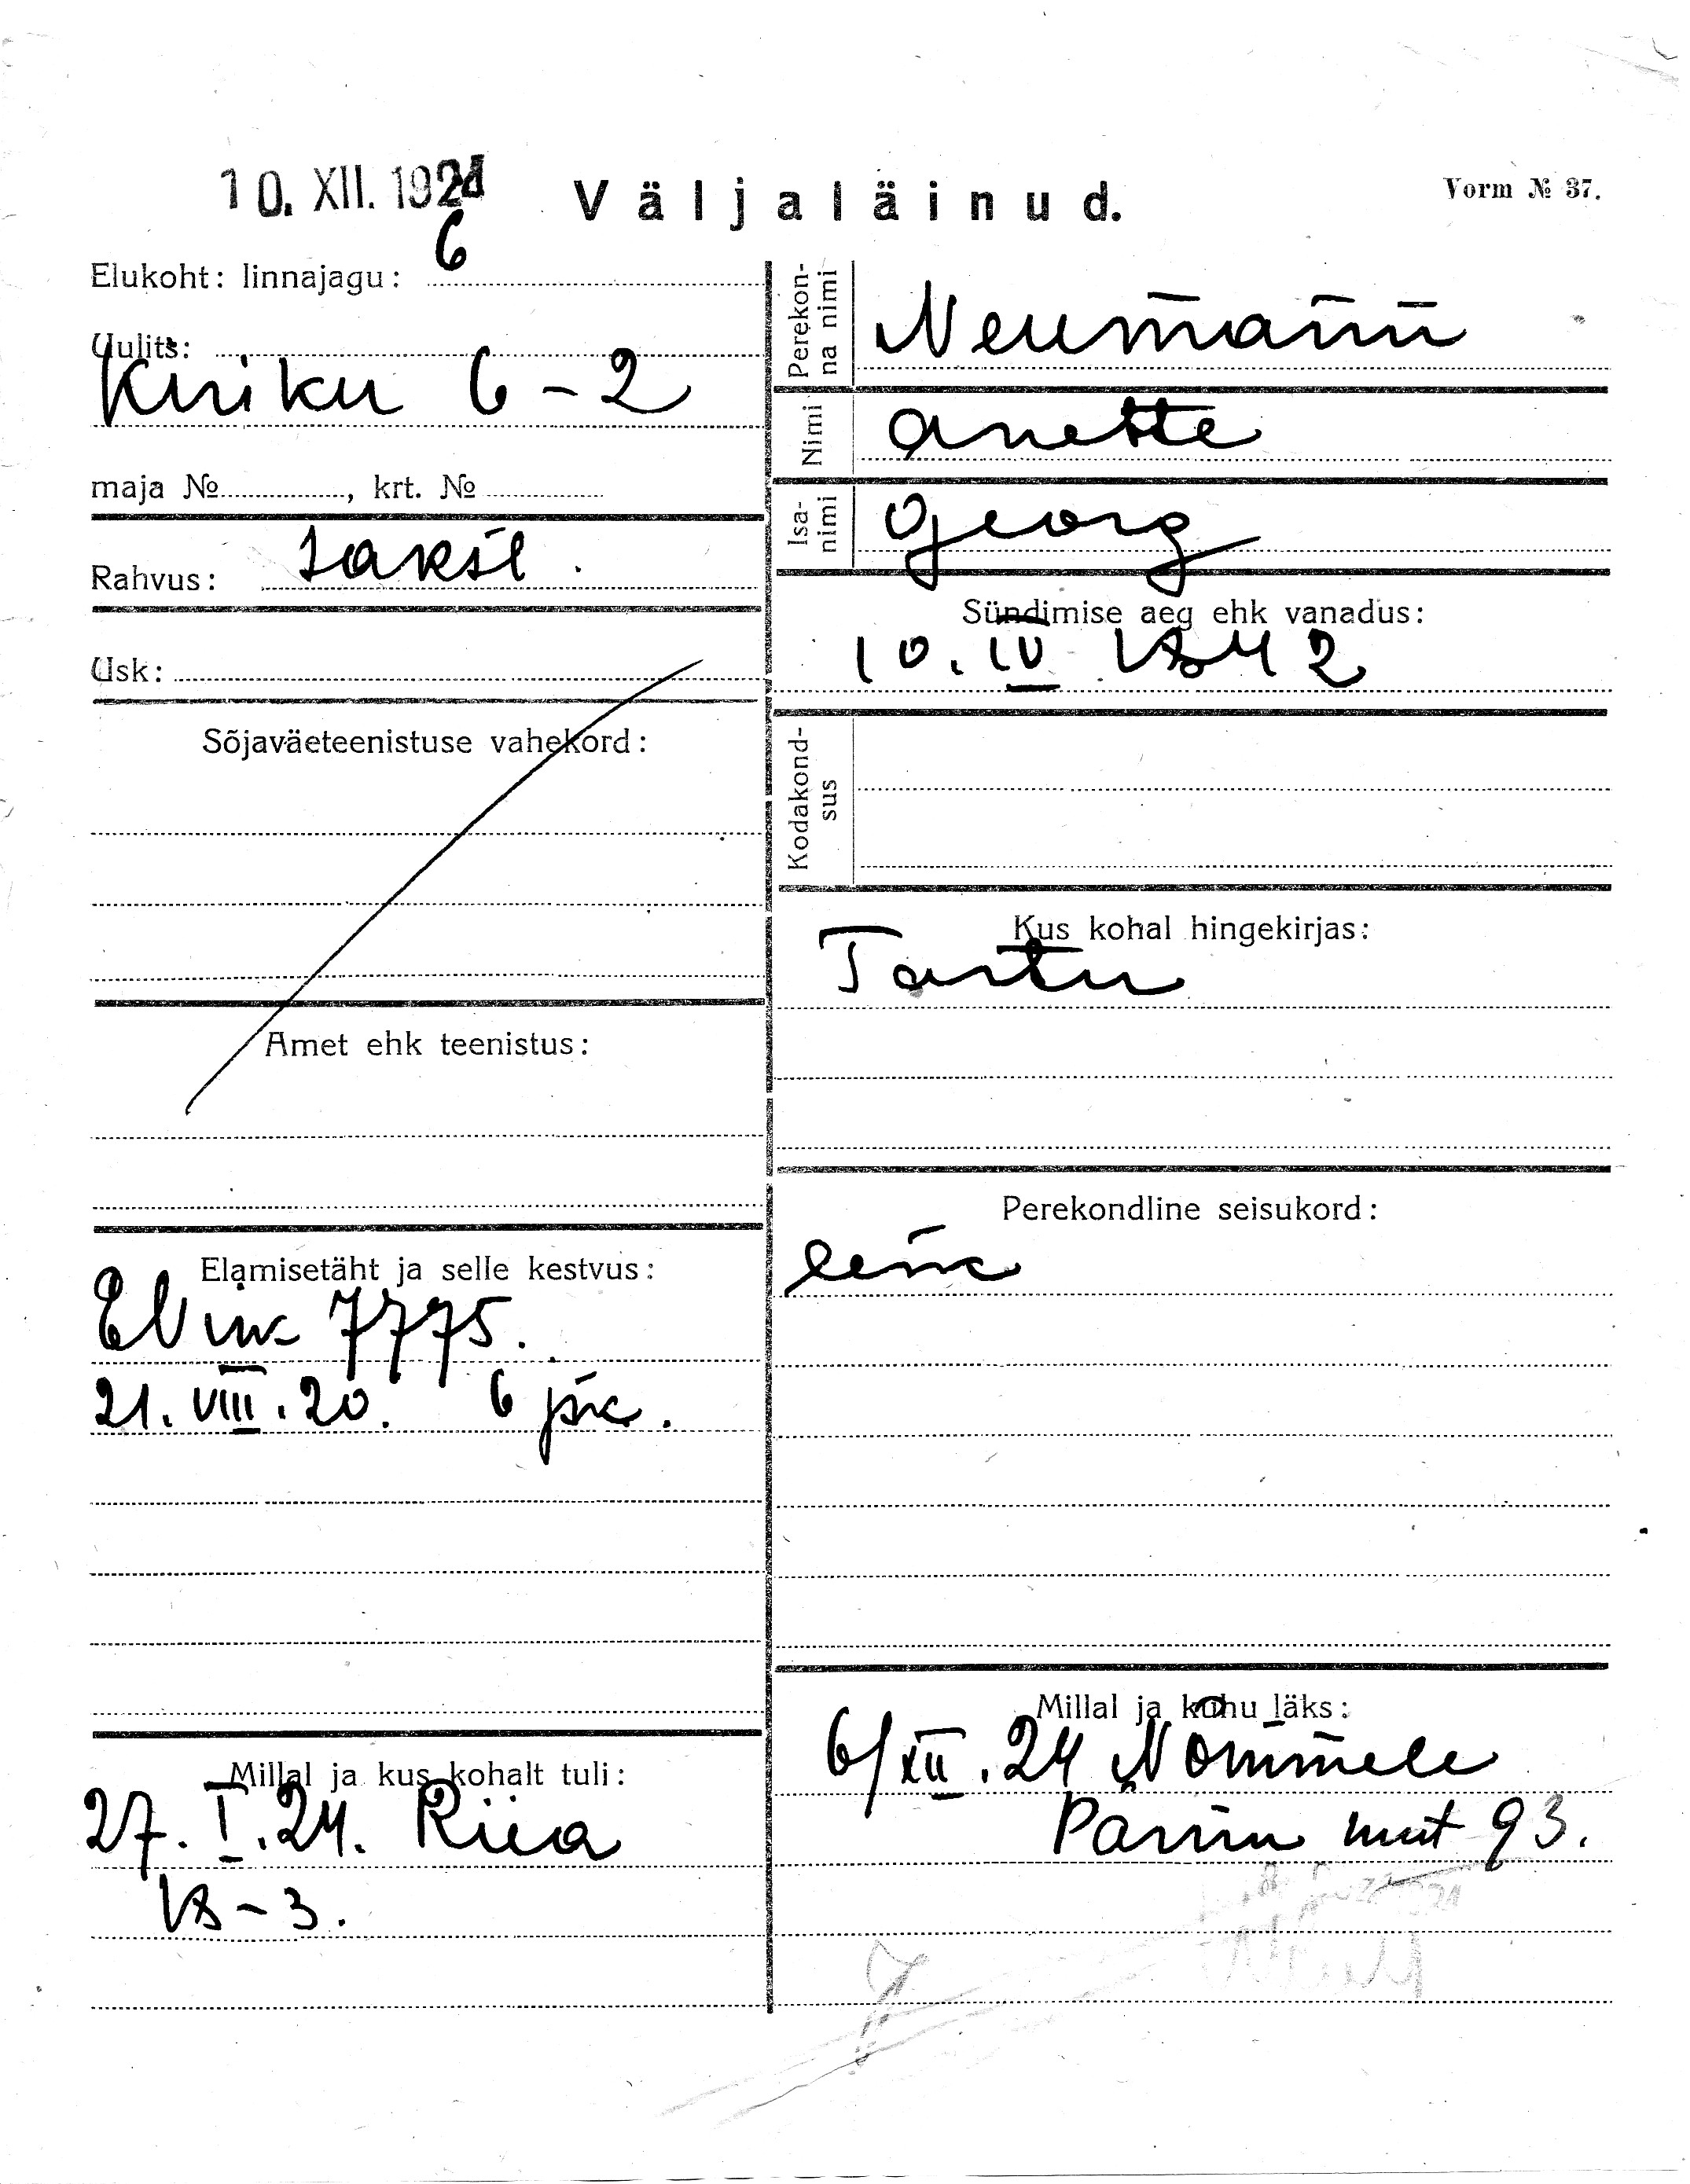 10. XII. 1924
Väljaläinud.
Vorm № 37.
Elukoht: linnajagu: 6
Uulits:
Kiriku 6-2
maja № , krt. №
Rahvus: saksl.
Usk:
Sõjaväeteenistuse vahekord:
Amet ehk teenistus:
Elamisetäht ja selle kestvus:
7775.
21. VIII. 20. 6 jsk.
Millal ja kus kohalt tuli:
27. I. 24. Riia
18-3.
Perekonna nimi
Neumann
Nimi
Anette
Isanimi
Georg
Sündimise aeg ehk vanadus:
10. IV 1842
Kodakondsus
Kus kohal hingekirjas:
Tartu
Perekondline seisukord:
lesk
Millal ja kuhu läks:
6/XII. 24 Nõmmele
Pärnu mnt 93.